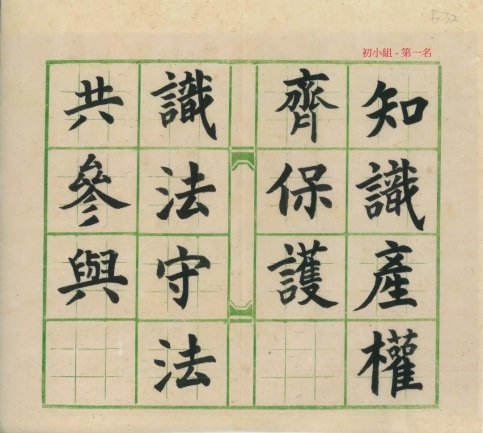 初小組 - 第一名
知識產權
齊保護
識法守法
共參與